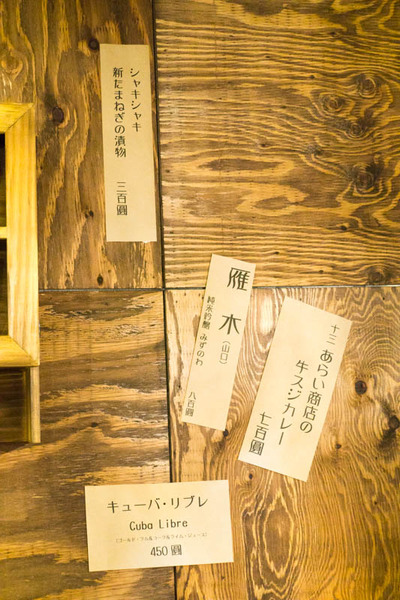 シャキシャキ
新たまねぎの漬物
三百圓
雁木
（山口）
純米吟醸 みずのわ
八百圓
十三 あらい商店の
牛スジカレー
七百圓
キューバ・リブレ
Cuba Libre
(ゴールド・ラム&コーラ&ライムジュース)
450圓